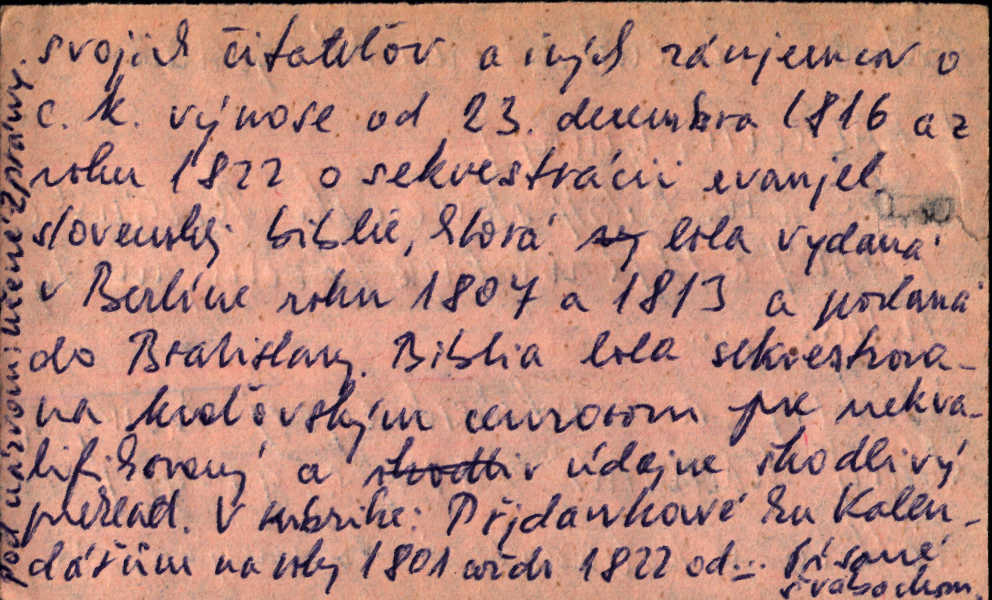 svojich čitateľov a iných záujemcov o
c. k. výnose od 23. decembra 1816 a z
roku 1822 o sekvestrácii evanjel.
slovenskej biblie, ktorá bola vydaná
v Berlíne roku 1807 a 1813 a poslaná
do Bratislavy. Biblia bola sekvestrova-
na kráľovským cenzorom pre nekva-
lifikovaný a v údajne škodlivý
preklad. V rubrike: Přjdawkowé ku Kalen-
dářům na roky 1801 až do 1822 od... Písané
švabachom.
pod názvom: Učené Zprávy.